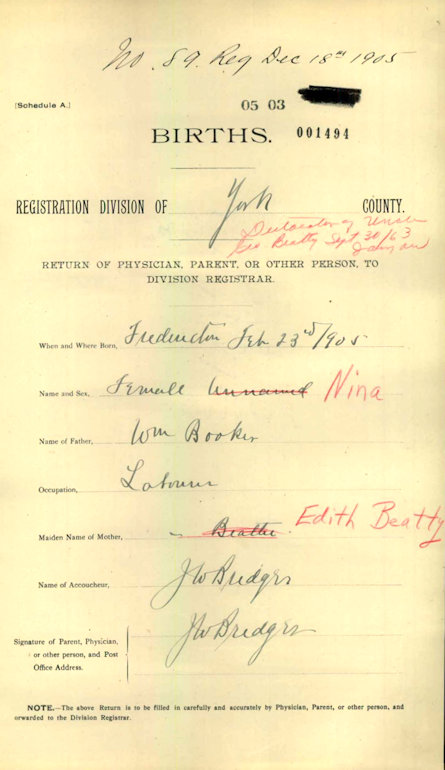 No. 89. Reg Dec 18th 1905
[Schedule A.]
05 03
BIRTHS. 001494
REGISTRATION DIVISION OF York COUNTY.
Declaration of Uncle
Geo Beatty Sept 30/63
RETURN OF PHYSICIAN, PARENT, OR OTHER PERSON, TO
DIVISION REGISTRAR.
When and Where Born, Fredericton Feb 23rd/1905
Name and Sex, Female Unnamed Nina
Name of Father, Wm Booker
Occupation, Labourer
Maiden Name of Mother, Beattie Edith Beatty
Name of Accoucheur, JW Bridges
Signature of Parent, Physician, JW Bridges
or other person, and Post
Office Address.
NOTE.—The above Return is to be filled in carefully and accurately by Physician, Parent, or other person, and
orwarded to the Division Registrar.